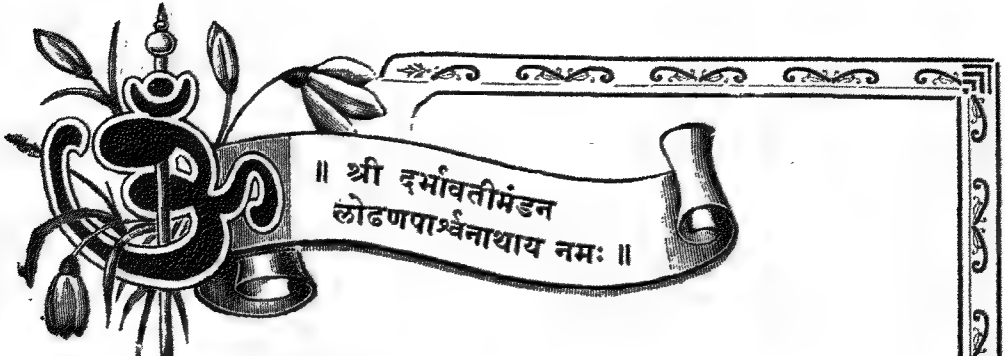 ॐ
॥ श्री दर्भावतीमंडन
लोढणपार्श्वनाथाय नमः ॥